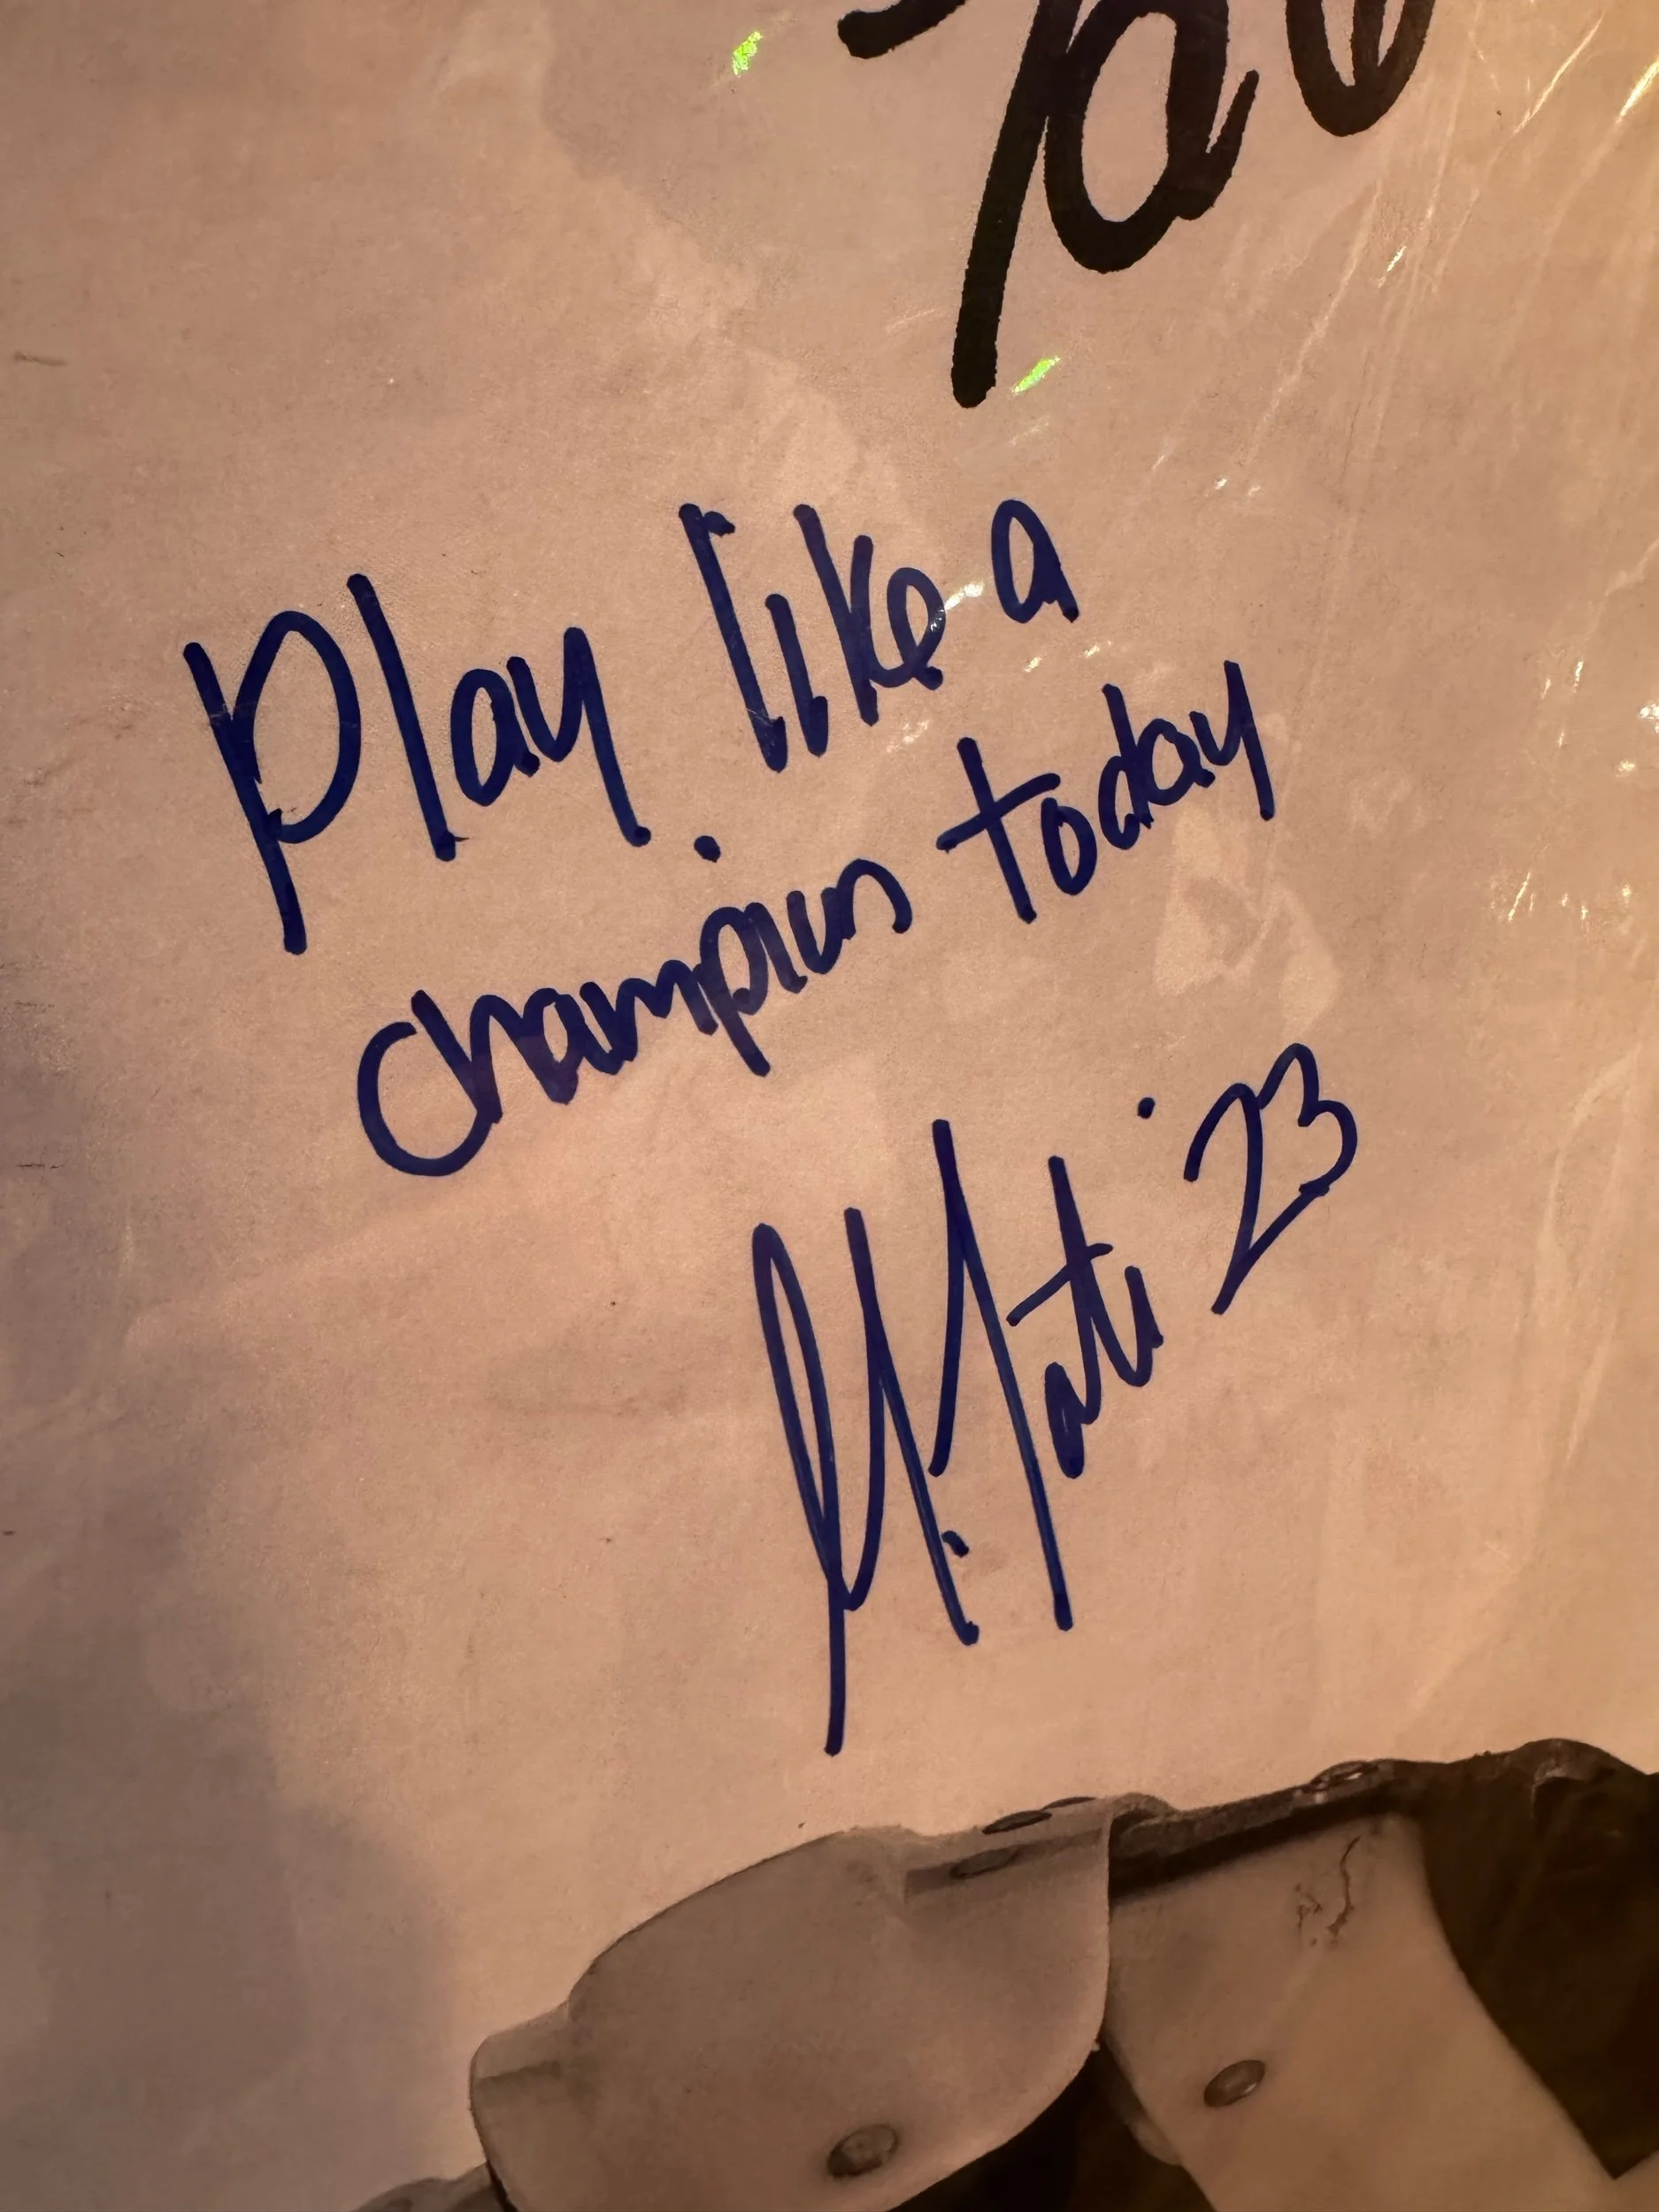 play like a
champion today
'23